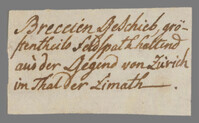 Breccien Geschieb, grö-
stentheils Feldspath haltend
aus der Gegend von Zürich
im Thal der Limath.